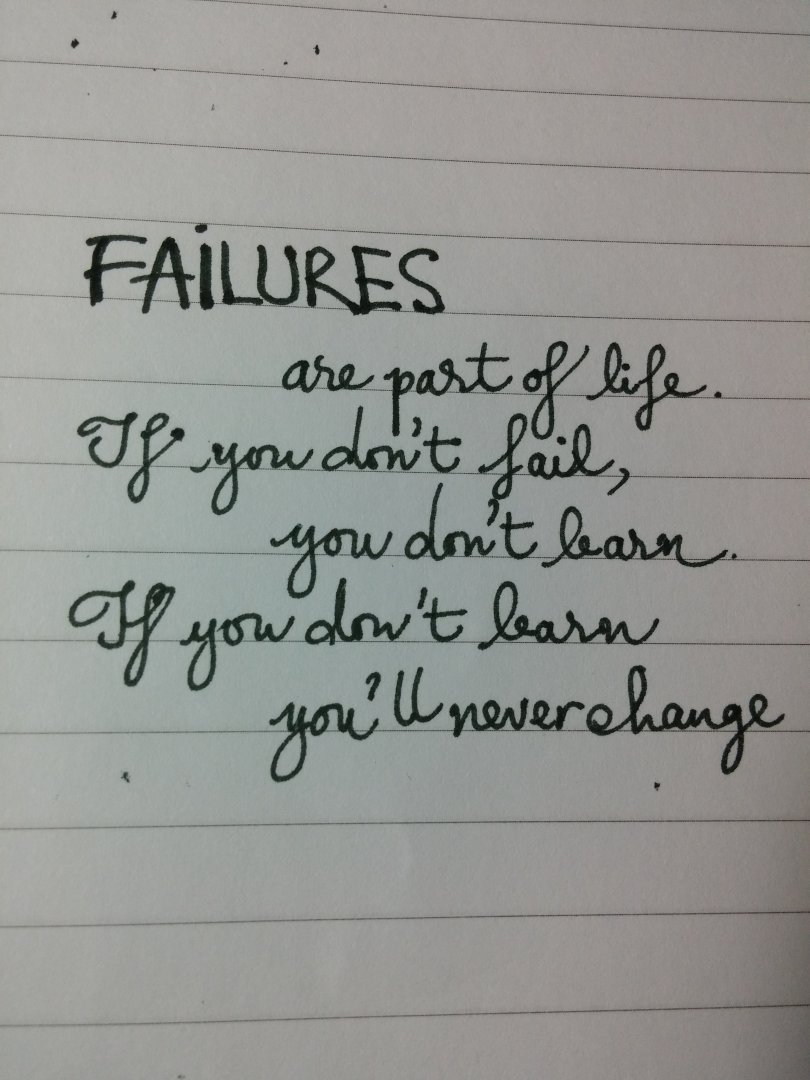 FAiLURES
are part of life.
If you don't fail,
you don't learn.
If you don't learn
you'll never change